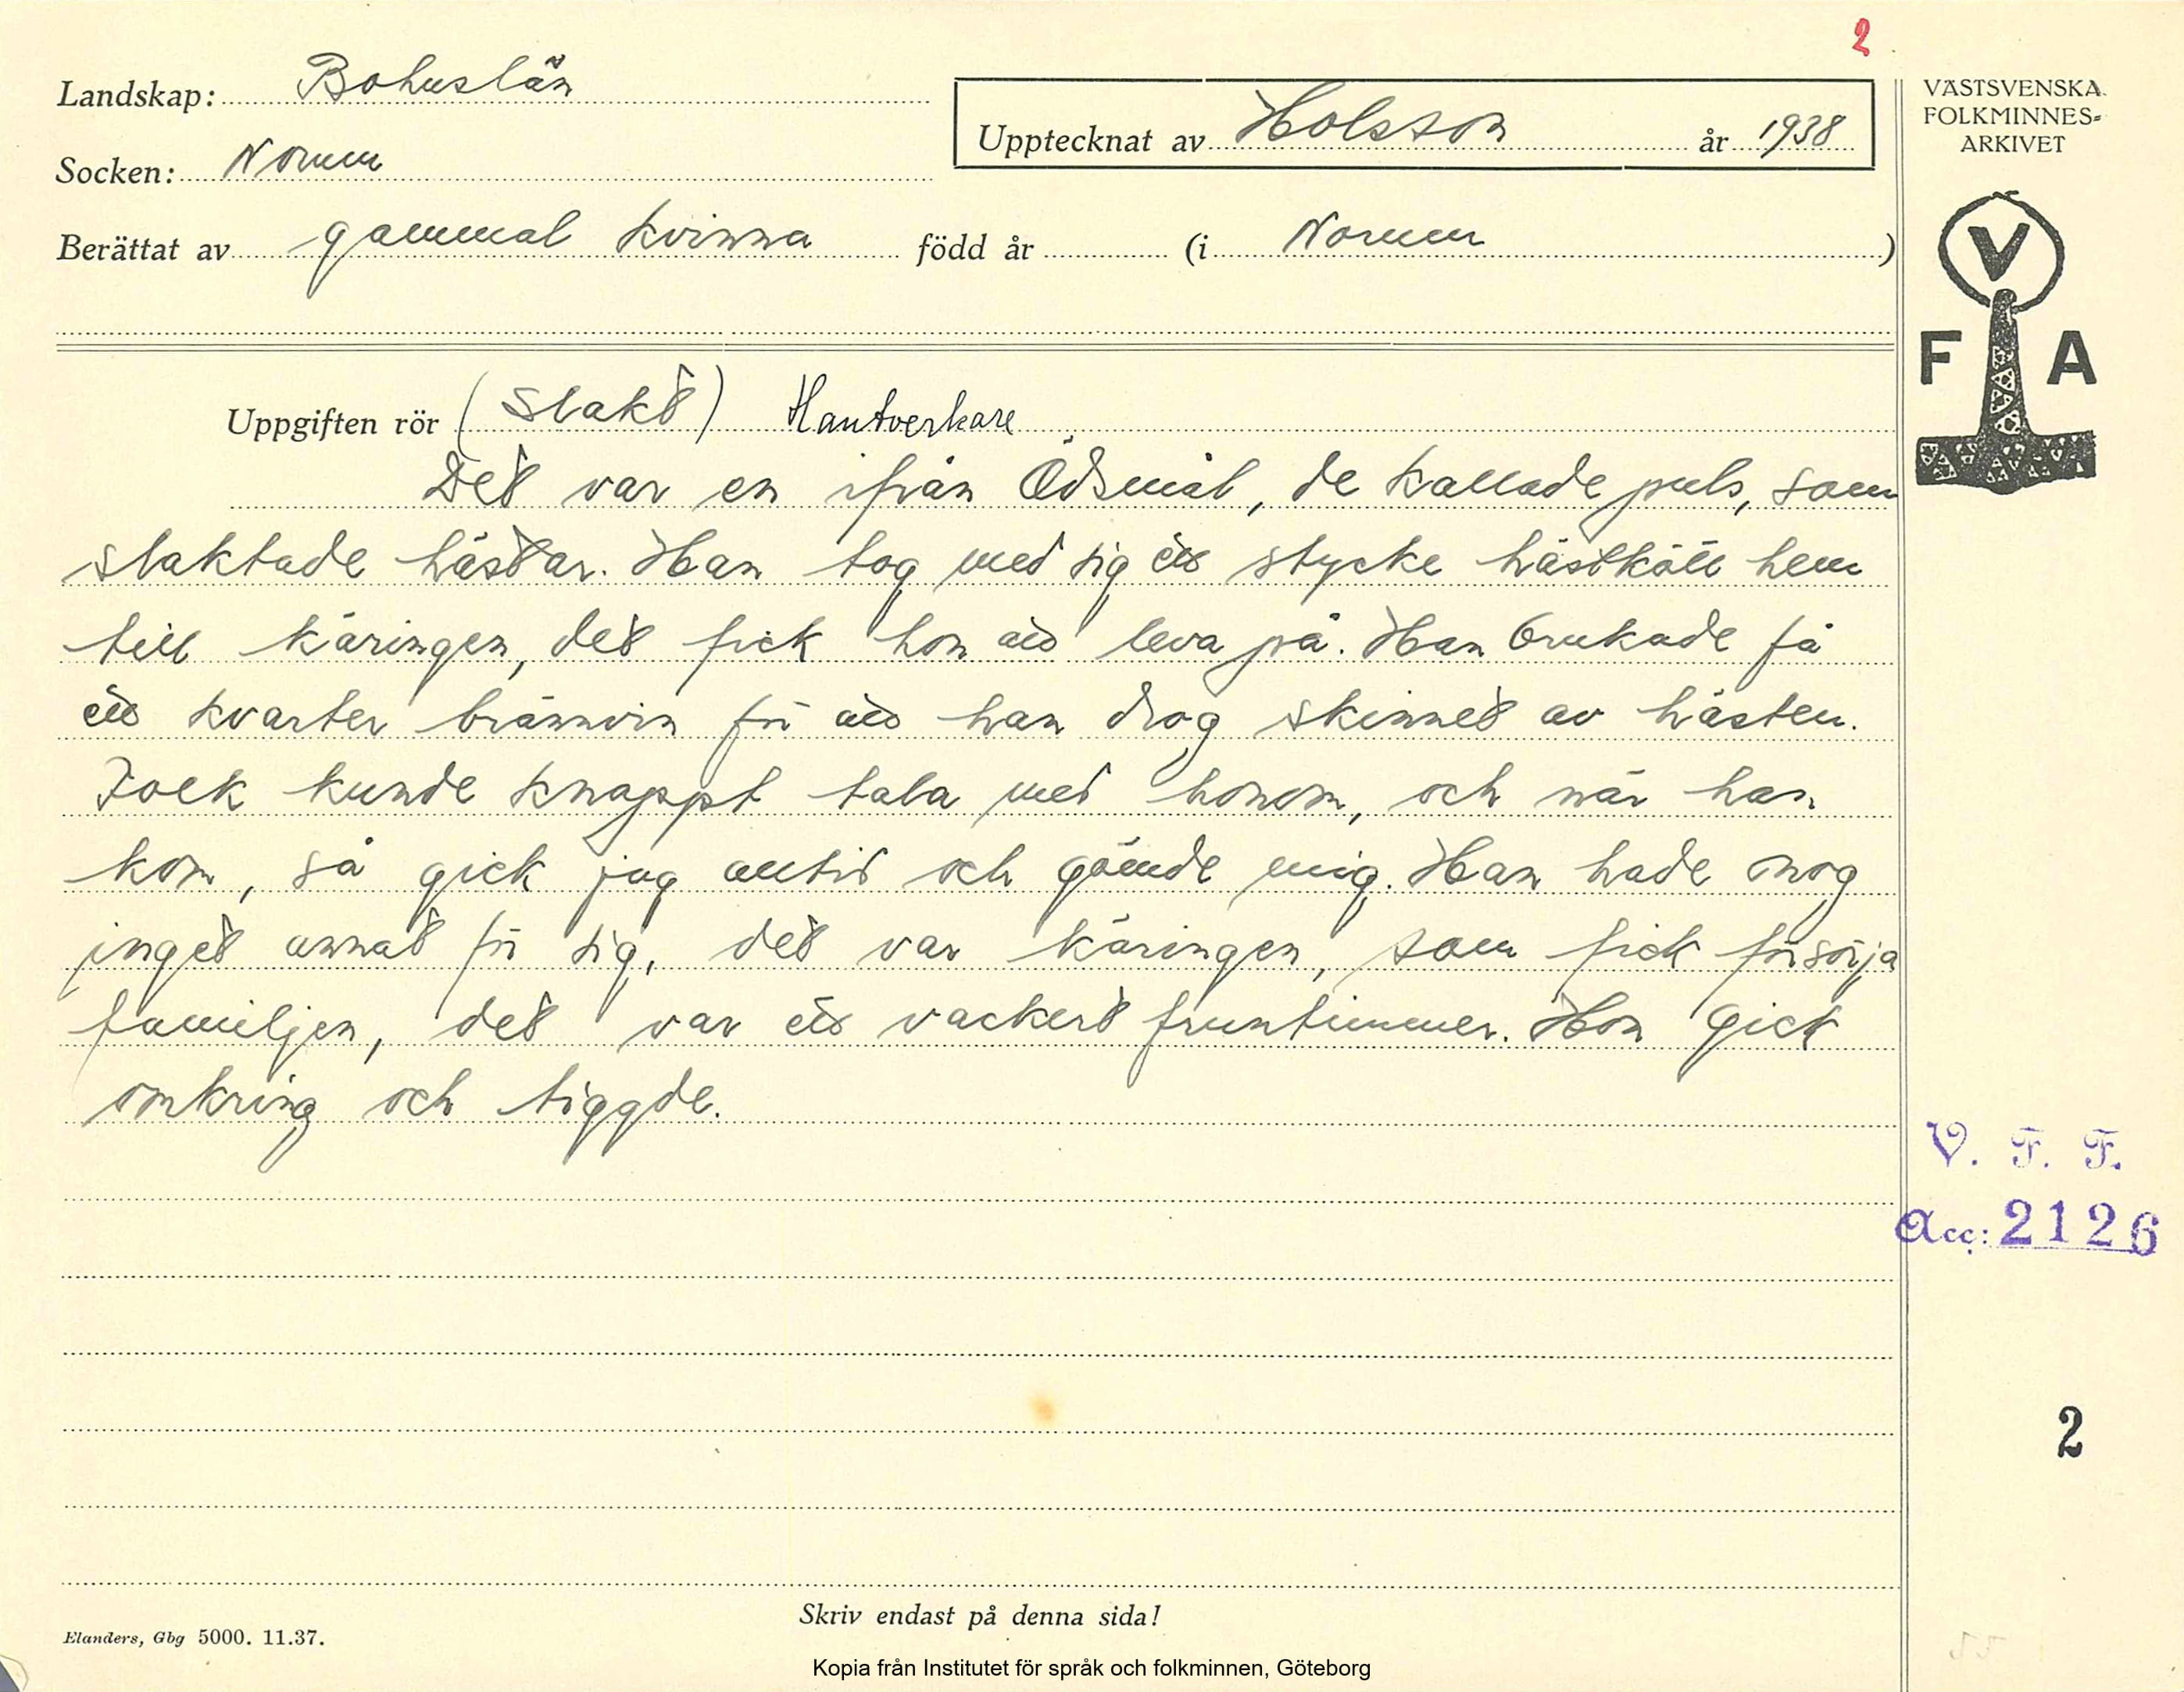 2
Landskap: Bohuslän
Upptecknat av Holsson år 1938
Socken: Norum
Berättat av gammal kvinna född år (i Norum )
VÄSTSVENSKA
FOLKMINNES-
ARKIVET
V
F A
Uppgiften rör (Slakt) Hantverkare
Det var en ifrån Ödsmål, de kallade puls, som
slaktade hästar. Han tog med sig ett stycke hästkött hem
till käringen, det fick hon att leva på. Han brukade få
ett kvarter brännvin för att han drog skinnet av hästen.
Folk kunde knappt tala med honom, och när han
kom, så gick jag alltid och gömde mig. Han hade nog
inget annat för sig, det var käringen, som fick försörja
familjen, det var ett vackert fruntimmer. Hon gick
omkring och tiggde.
V. F. F.
Acc: 2126
2
Skriv endast på denna sida!
Elanders, Gbg 5000. 11.37.
55
Kopia från Institutet för språk och folkminnen, Göteborg